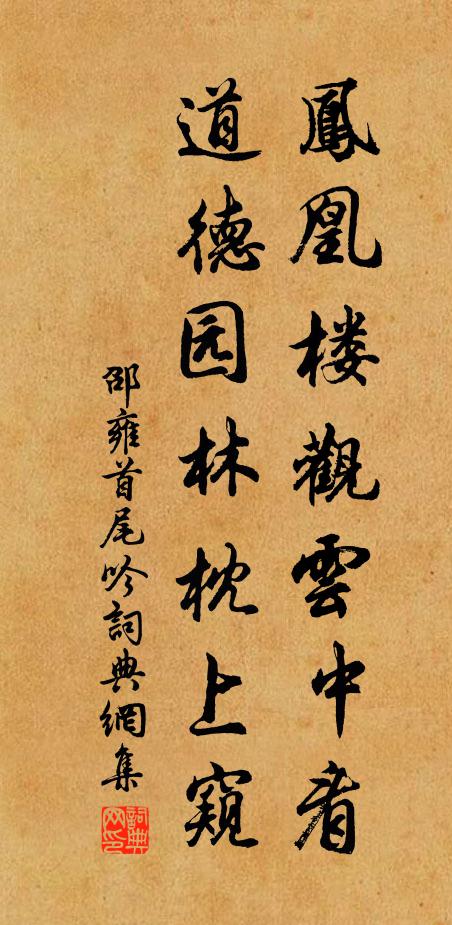 鳳凰楼觀雲中看
道德园林枕上窺
邵雍首尾吟詞典網集
詞典网印